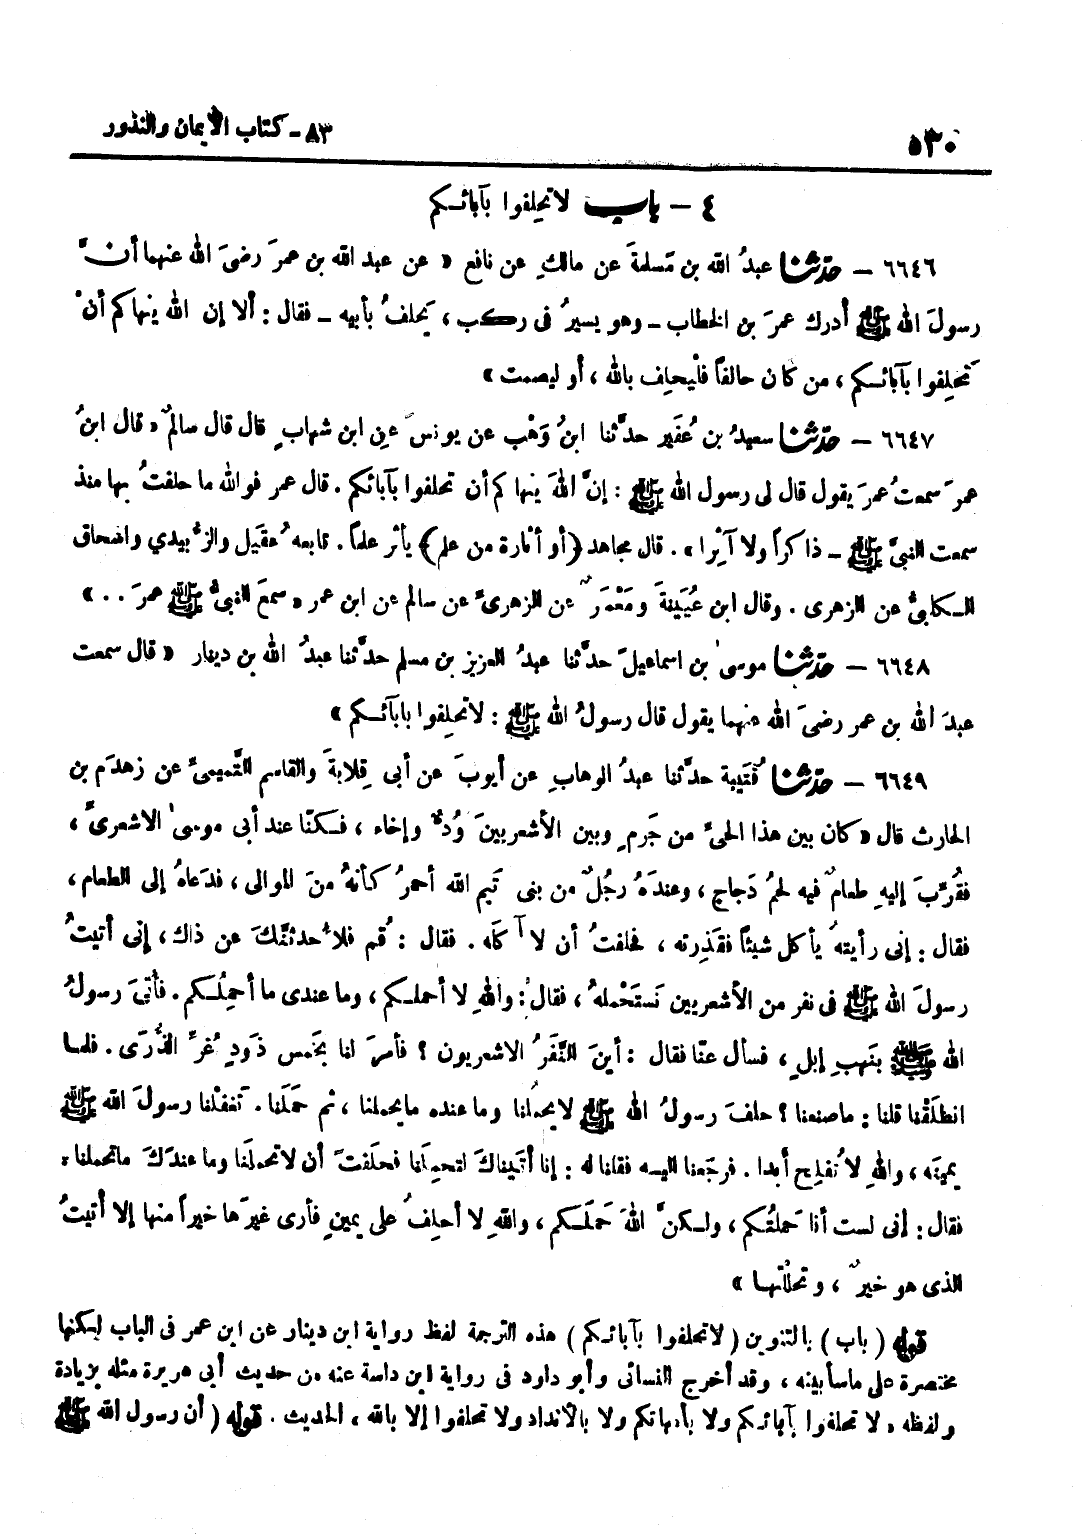 ٥٣٠
٨٣ - كتاب الأيمان والنذور
٤ - باب لا تحلفوا بآبائكم
٦٦٤٦ - حدّثنا عبدُ الله بن مَسلمةَ عن مالكِ عن نافع « عن عبد الله بن عمرَ رضىَ الله عنهما أنَّ
رسولَ الله ﷺ أدرك عمرَ بن الخطاب - وهو يسيرُ فى ركب ، يَحلفُ بأبيه - فقال : ألا إن الله ينهاكم أنْ
تَحلِفوا بآبائكم ، من كان حالفاً فلْيحلِف بالله ، أو ليصمت »
٦٦٤٧ - حدّثنا سعيدُ بن عُفَير حدَّثنا ابنُ وَهْب عن يونسَ عنِ ابن شهابٍ قال قال سالمٌ « قال ابنُ
عمرَ سمعتُ عمرَ يقول قال لى رسول الله ﷺ : إنَّ اللهَ ينهاكم أن تحلفوا بآبائكم . قال عمر فوالله ما حلفتُ بها منذ
سمعت النبىَّ ﷺ - ذاكراً ولا آثِرا » . قال مجاهد ( أو أثارة من علم ) يأثر علماً . تابعه عُقَيل والزُّبيدي واسحاق
الكلبىُّ عن الزهرى . وقال ابن عُيَينةَ ومَعْمَرٌ عن الزهرىَّ عن سالم عن ابن عمر « سمعَ النبىُّ ﷺ عمرَ . . »
٦٦٤٨ - حدّثنا موسىٰ بن اسماعيلَ حدَّثنا عبدُ العزيز بن مسلم حدَّثنا عبدُ الله بن دينار « قال سمعت
عبدَ الله بن عمر رضىَ الله عنهما يقول قال رسولُ الله ﷺ : لا تحلِفوا بآبائكم »
٦٦٤٩ - حدّثنا قُتَيبة حدَّثنا عبدُ الوهابِ عن أيوبَ عن أبى قِلابةَ والقاسم التَّميمىِّ عن زهدَم بن
الحارث قال « كان بين هذا الحىِّ من جَرمٍ وبين الأشعريينَ وُدٌّ وإخاء ، فكنّا عند أبى موسىٰ الاشعرىِّ ،
فقُرِّبَ إليهِ طعامٌ فيه لحمُ دَجاج ، وعندَهُ رجُلٌ من بنى تَيم الله أحمرُ كأنهُ منَ الموالى ، فدَعاهُ إلى الطعام ،
فقال : إنى رأيتهُ يأكل شيئاً فقَذِرته ، فحلفتُ أن لا آكله . فقال : قُم فلأُحدثنَّكَ عن ذاك ، إنى أتيتُ
رسولَ الله ﷺ فى نفر من الأشعريين نَستَحْملهُ ، فقال : واللهِ لا أحملكم ، وما عندى ما أحمِلُكم . فأُتىَ رسولُ
الله ﷺ بنَهبِ إبلٍ ، فسأل عنّا فقال : أينَ النَّفَرُ الاشعريون ؟ فأمرَ لنا بخَمس ذَودٍ غُرِّ الذُّرَى . فلما
انطلَقْنا قلنا : ماصنعنا ؟ حلفَ رسولُ الله ﷺ لا يحملُنا وما عنده مايحملنا ، ثم حَمَلَنا . تغفلْنا رسولَ الله ﷺ
يمينَه ، واللهِ لا نُفلِح أبدا . فرجَعنا اليه فقلنا له : إنا أتيناكَ لتحمِلَنا فحلَفتَ أن لا تحملَنا وما عندَكَ ماتحملنا .
فقال : إنى لست أنا حَملتُكم ، ولكنَّ اللهَ حَمَلَكم ، واللهِ لا أحلِفُ على يمينٍ فأرى غيرَها خيراً منها إلا أتيتُ
الذى هو خيرٌ ، وتحلَّلتها »
قوله ( باب ) بالتنوين ( لا تحلفوا بآبائكم ) هذه الترجمة لفظ رواية ابن دينار عن ابن عمر فى الباب لكنها
مختصرة على ماسأبينه ، وقد أخرج النسائى وأبو داود فى رواية ابن داسة عنه من حديث أبى هريرة مثله بزيادة
ولفظه « لا تحلفوا بآبائكم ولا بأمهاتكم ولا بالأنداد ولا تحلفوا إلا بالله ، الحديث . قوله ( أن رسول الله ﷺ